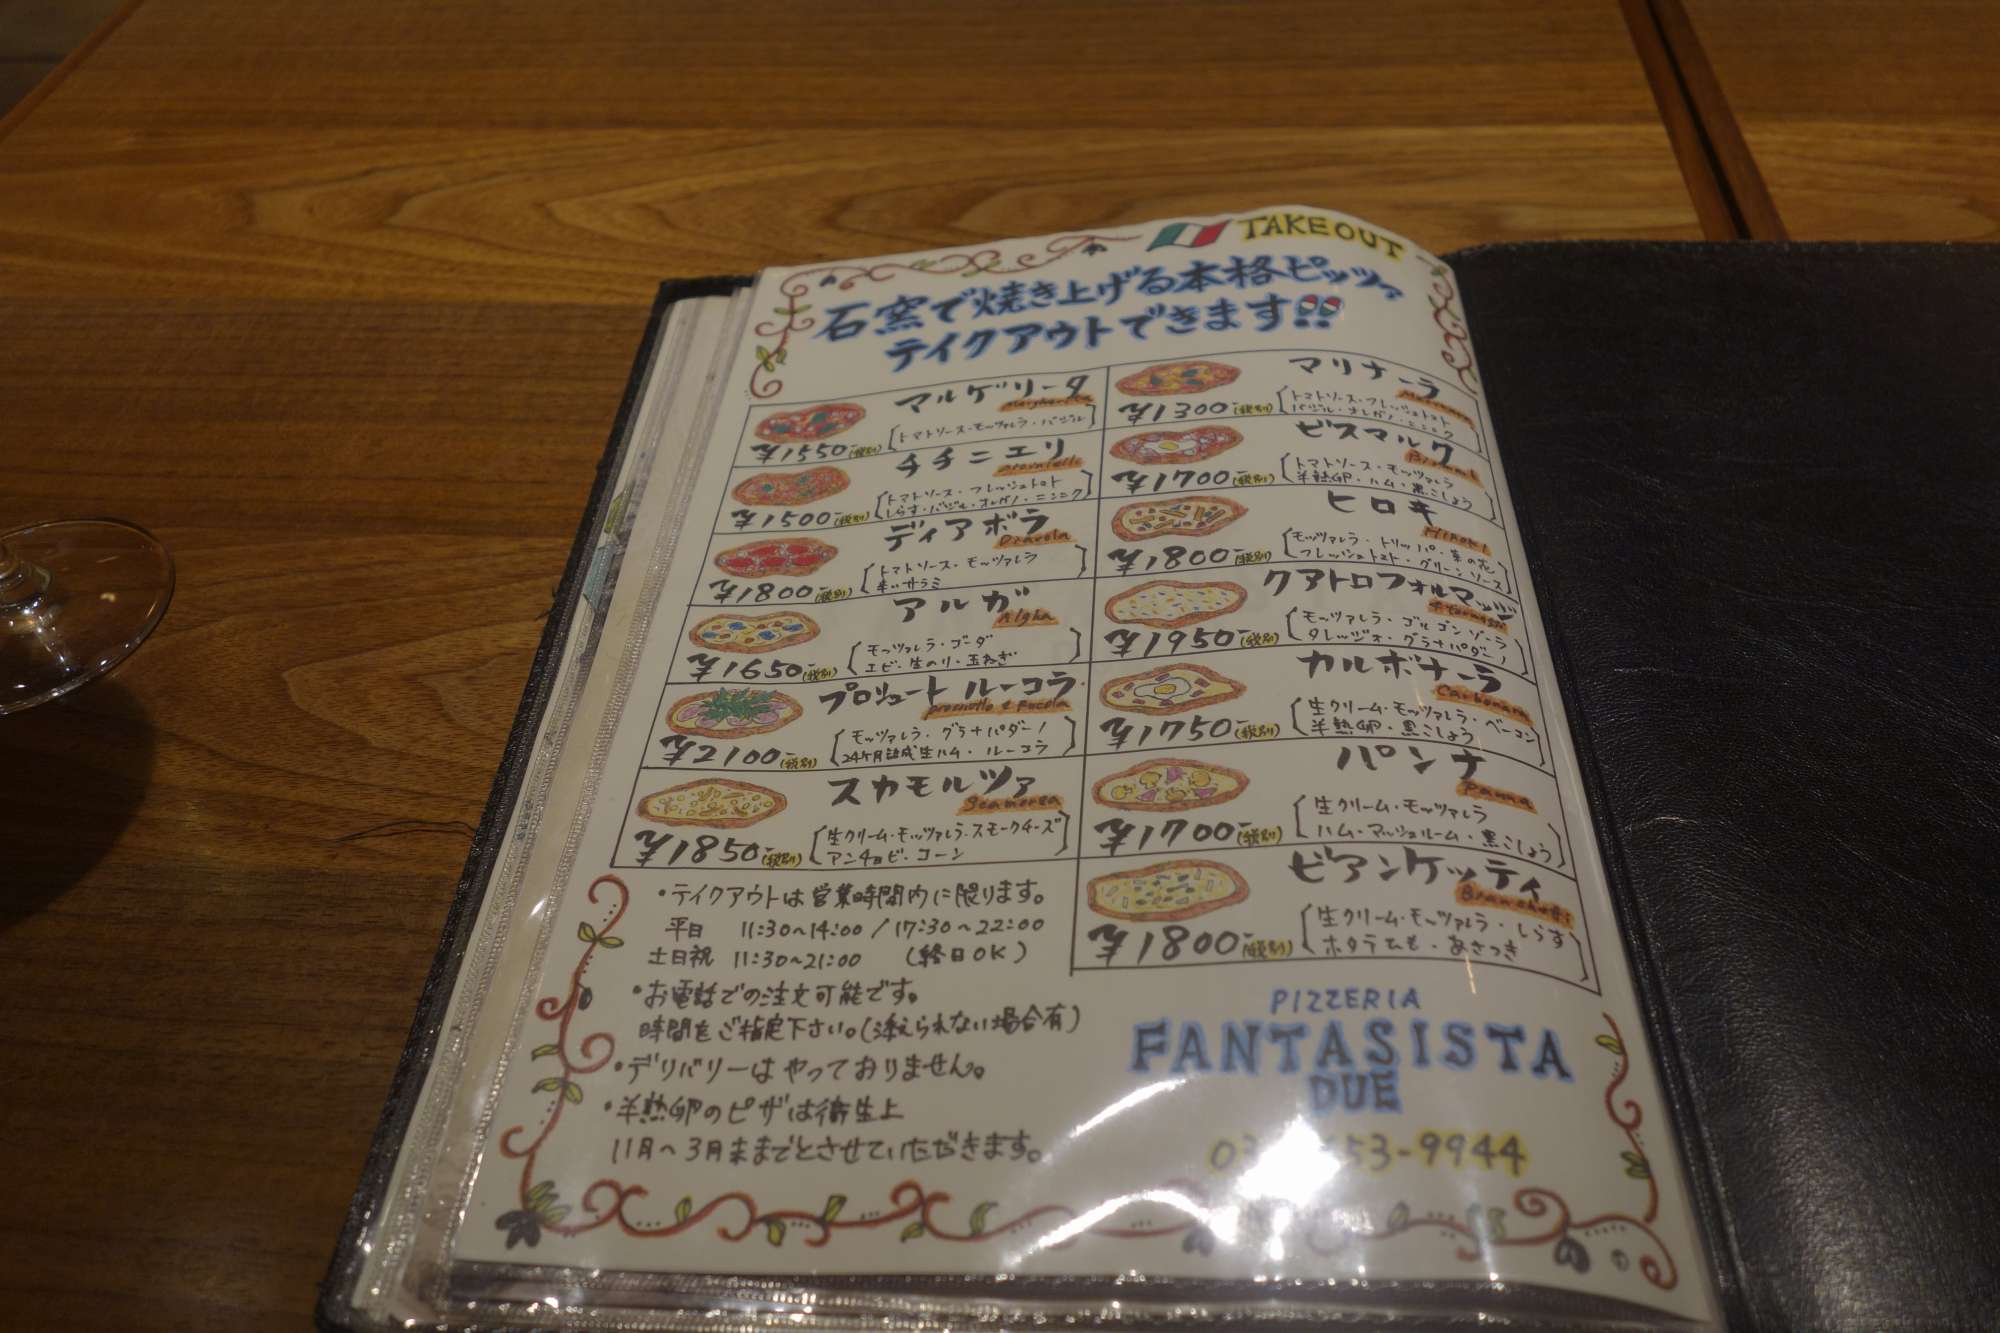 TAKEOUT
石窯で焼き上げる本格ピッツァ
テイクアウトできます!!
マルゲリータ
Margherita
¥1550-(税別)
トマトソース・モッツァレラ・バジル
チチニエリ
¥1500-(税別)
トマトソース・フレッシュトマト
しらす・バジル・オレガノ・ニンニク
ディアボラ
Diavola
¥1800-(税別)
トマトソース・モッツァレラ
辛いサラミ
アルガ
Algha
¥1650-(税別)
モッツァレラ・ゴーダ
エビ・生のり・玉ねぎ
プロシュート ルーコラ
prosciutto e Rucola
¥2100-(税別)
モッツァレラ・グラナパダーノ
24ヶ月熟成生ハム・ルーコラ
スカモルツァ
Scamorza
¥1850-(税別)
生クリーム・モッツァレラ・スモークチーズ
アンチョビ・コーン
マリナーラ
Marinara
¥1300-(税別)
トマトソース・フレッシュトマト
バジル・オレガノ・ニンニク
ビスマルク
Bismark
¥1700-(税別)
トマトソース・モッツァレラ
半熟卵・ハム・黒こしょう
ヒロキ
HIROKI
¥1800-(税別)
モッツァレラ・トリッパ・菜の花
フレッシュトマト・グリーンソース
クアトロフォルマッジ
¥1950-(税別)
モッツァレラ・ゴルゴンゾーラ
タレッジオ・グラナパダーノ
カルボナーラ
Carbonara
¥1750-(税別)
生クリーム・モッツァレラ・ベーコン
半熟卵・黒こしょう
パンナ
Panna
¥1700-(税別)
生クリーム・モッツァレラ
ハム・マッシュルーム・黒こしょう
ビアンケッティ
Bianchetti
¥1800-(税別)
生クリーム・モッツァレラ・しらす
ホタテひも・あさつき
・テイクアウトは営業時間内に限ります。
平日 11:30〜14:00 / 17:30〜22:00
土日祝 11:30〜21:00 (終日OK)
・お電話での注文可能です。
時間をご指定下さい。(添えられない場合有)
・デリバリーはやっておりません。
・半熟卵のピザは衛生上
11月〜3月末までとさせていただきます。
PIZZERIA
FANTASISTA
DUE
53-9944